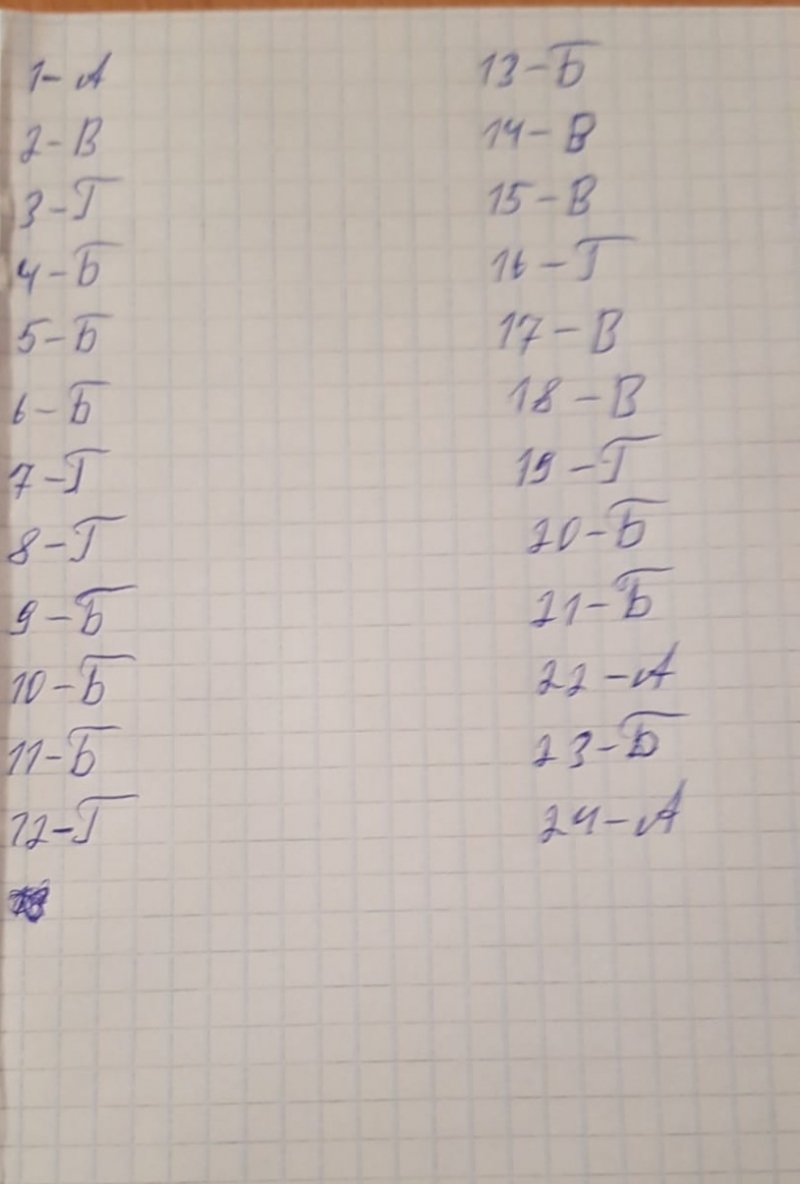 1-А
2-В
3-Г
4-Б
5-Б
6-Б
7-Г
8-Г
9-Б
10-Б
11-Б
12-Г
13-Б
14-В
15-В
16-Г
17-В
18-В
19-Г
20-Б
21-Б
22-А
23-Б
24-А